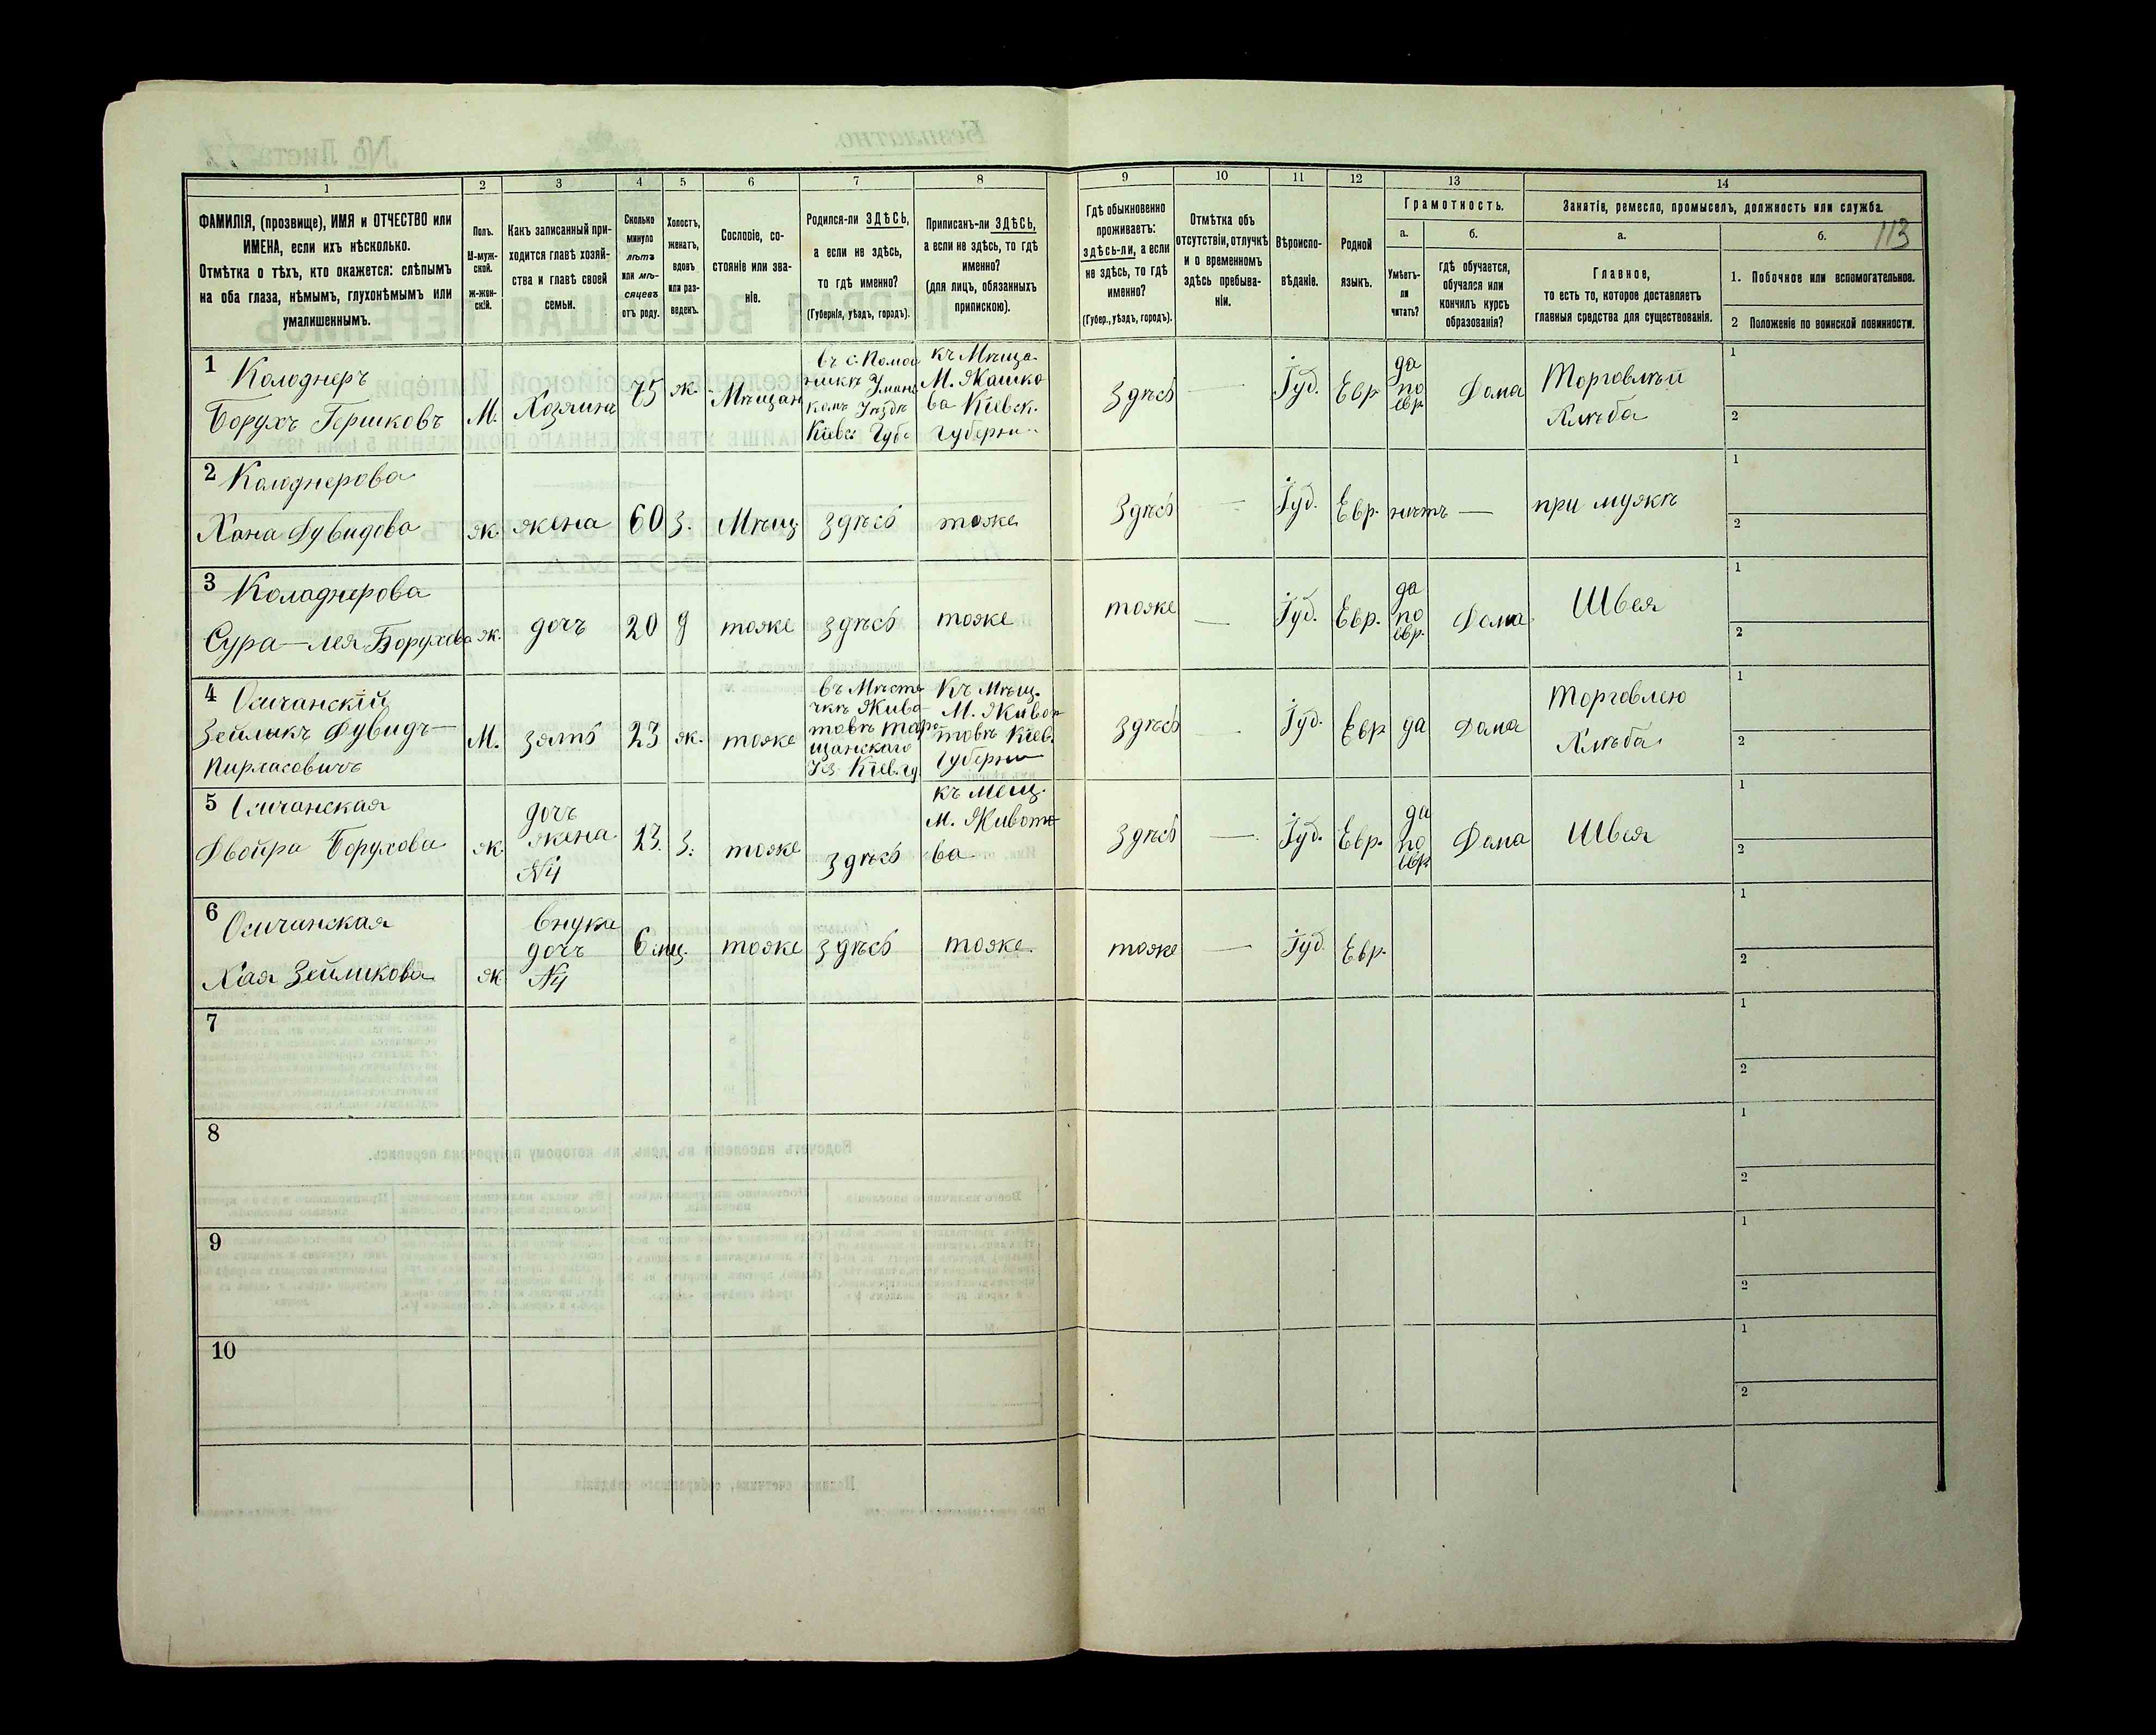 1 2 3 4 5 6 7 8 9 10 11 12 13 14
ФАМИЛІЯ, (прозвище), ИМЯ и ОТЧЕСТВО или
ИМЕНА, если ихъ нѣсколько.
Отмѣтка о тѣхъ, кто окажется: слѣпымъ
на оба глаза, нѣмымъ, глухонѣмымъ или
умалишеннымъ.
Полъ.
М-муж-
ской.
Ж-жен-
скій.
Какъ записанный при-
ходится главѣ хозяй-
ства и главѣ своей
семьи.
Сколько
минуло
лѣтъ
или мѣ-
сяцевъ
отъ роду.
Холостъ,
женатъ,
вдовъ
или раз-
веденъ.
Сословіе, со-
стояніе или зва-
ніе.
Родился-ли ЗДѢСЬ,
а если не здѣсь,
то гдѣ именно?
(Губернія, уѣздъ, городъ).
Приписанъ-ли ЗДѢСЬ,
а если не здѣсь, то гдѣ
именно?
(для лицъ, обязанныхъ
припискою).
Гдѣ обыкновенно
проживаетъ:
здѣсь-ли, а если
не здѣсь, то гдѣ
именно?
(Губер., уѣздъ, городъ).
Отмѣтка объ
отсутствіи, отлучкѣ
и о временномъ
здѣсь пребыва-
ніи.
Вѣроиспо-
вѣданіе.
Родной
языкъ.
Грамотность.
а.
Умѣетъ-
ли
читать?
б.
гдѣ обучается,
обучался или
кончилъ курсъ
образованія?
Занятіе, ремесло, промыселъ, должность или служба.
113
а.
Главное,
то есть то, которое доставляетъ
главныя средства для существованія.
б.
1. Побочное или вспомогательное.
2 Положеніе по воинской повинности.
1 Колоднеръ
Борухъ Гершковъ
М.
Хозяинъ
75
ж.
Мѣщан
въ с.
Кіевс. Губ.
къ Мѣща.
М. Жашко
ва Кіевск.
Губерни
здѣсь
—
Іуд.
Евр
да
по
евр.
Дома
Торговлей
Хлѣба
1
2
2 Колоднерова
Хана Дувидова
ж.
жена
60
з.
Мѣщ
здѣсь
тоже
здѣсь
—
Іуд.
Евр.
нѣтъ
—
при мужѣ
1
2
3 Колоднерова
Сура-Лея Борухова
ж.
дочь
20
д
тоже
здѣсь
тоже
тоже
—
Іуд.
Евр.
да
по
евр.
Дома
Швея
1
2
4
Зейликъ Дувидъ—
М.
зять
23
ж.
тоже
въ Мѣсте
чкѣ Живо
товѣ Тара
щанскаго
Уѣз. Кіев. гу.
Къ Мѣщ.
М. Живо
товѣ Кіев.
Губерни
здѣсь
—
Іуд.
Евр
да
Дома
Торговлею
Хлѣба
1
2
5
Двойра Борухова
ж.
дочь
жена
№4
23.
з.
тоже
здѣсь
къ Мещ.
М. Живото
ва
здѣсь
—
Іуд.
Евр.
да
по
евр
Дома
Швея
1
2
6
Хая Зейликова
ж
внука
дочь
№4
6 мц.
тоже
здѣсь
тоже.
тоже
—
Іуд.
Евр.
1
2
7
1
2
8
1
2
9
1
2
10
1
2